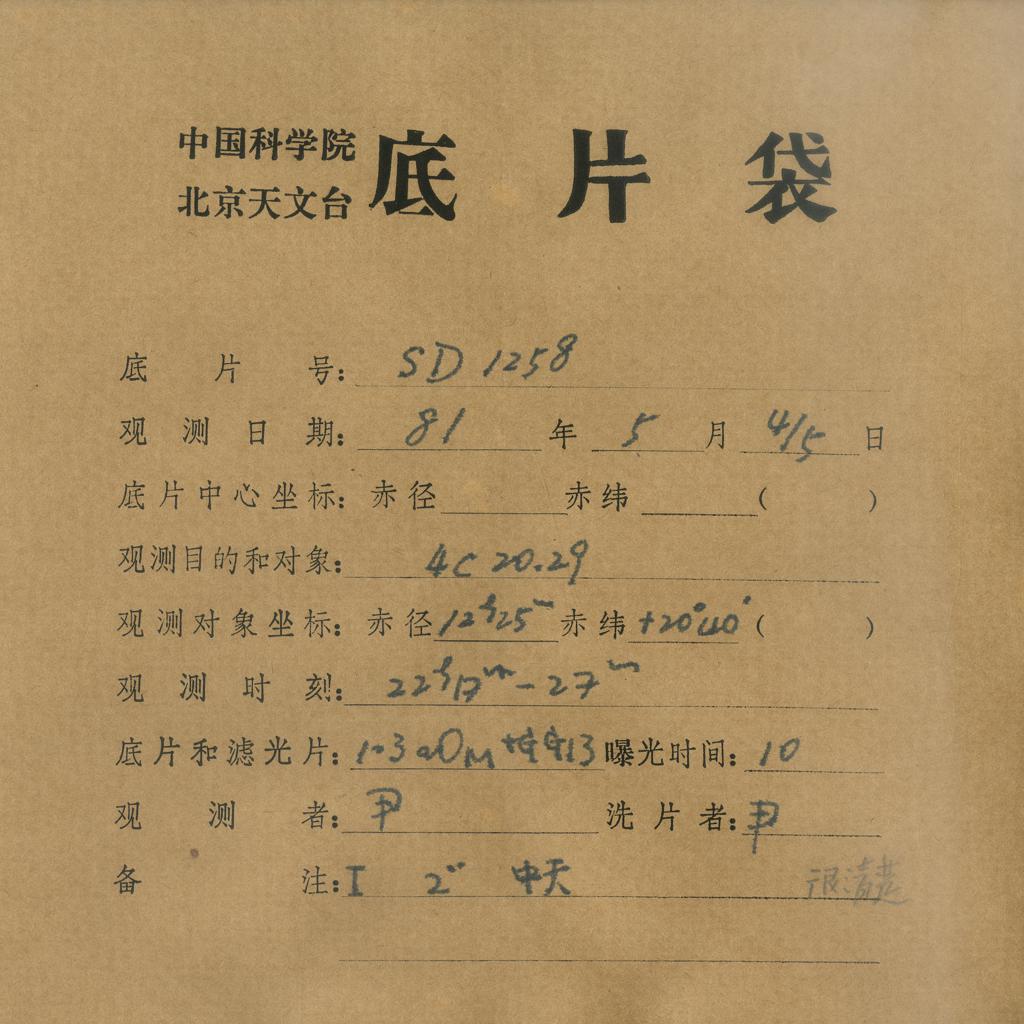 中国科学院
北京天文台 底片袋
底片号: SD 1258
观测日期: 81 年 5 月 4/5 日
底片中心坐标: 赤径 赤纬 ( )
观测目的和对象: 4C 20.29
观测对象坐标: 赤径 12h25m 赤纬 +20°40′ ( )
观测时刻: 22h17m-27m
底片和滤光片: 曝光时间: 10
观测者: 尹 洗片者: 尹
备注: I 2" 中天 很清楚